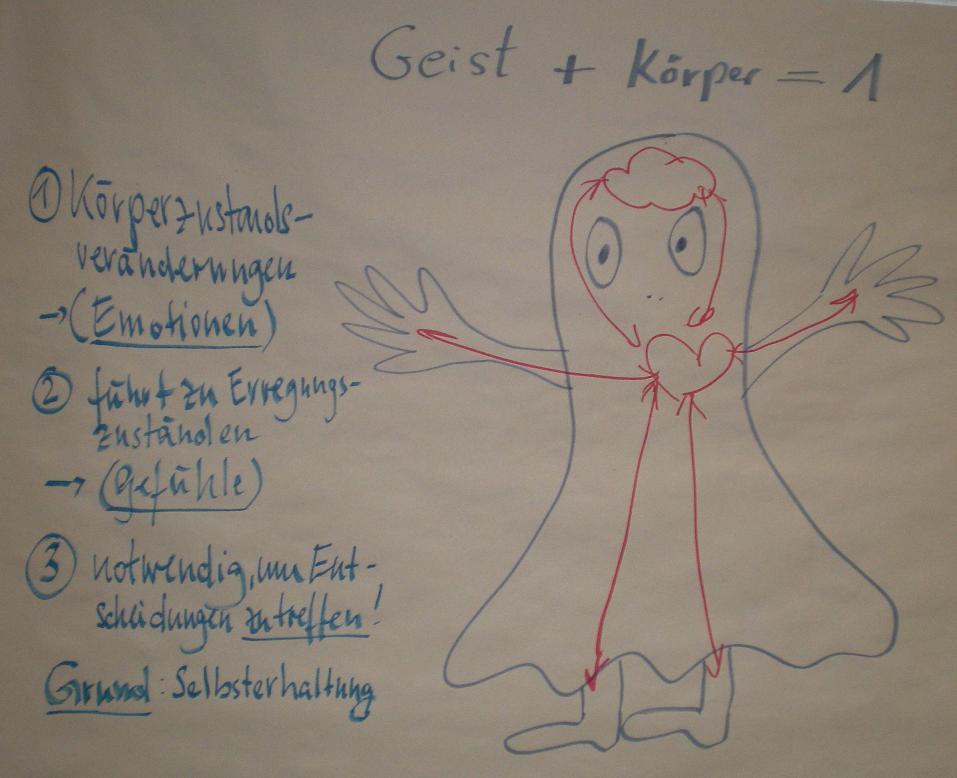 Geist + Körper = 1
① Körperzustands-
veränderungen
→ (Emotionen)
② führt zu Erregungs-
zuständen
→ (Gefühle)
③ notwendig, um Ent-
scheidungen zu treffen!
Grund: Selbsterhaltung